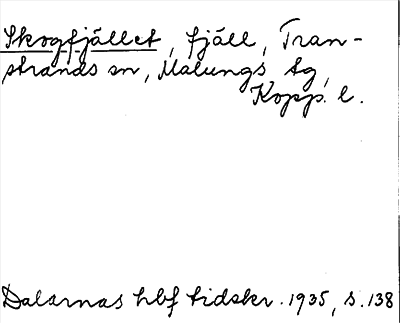 Skogfjället, fjäll, Tran-
strands sn, Malungs tg,
Kopp. l.
Dalarnas hbf tidskr. 1935, s. 138